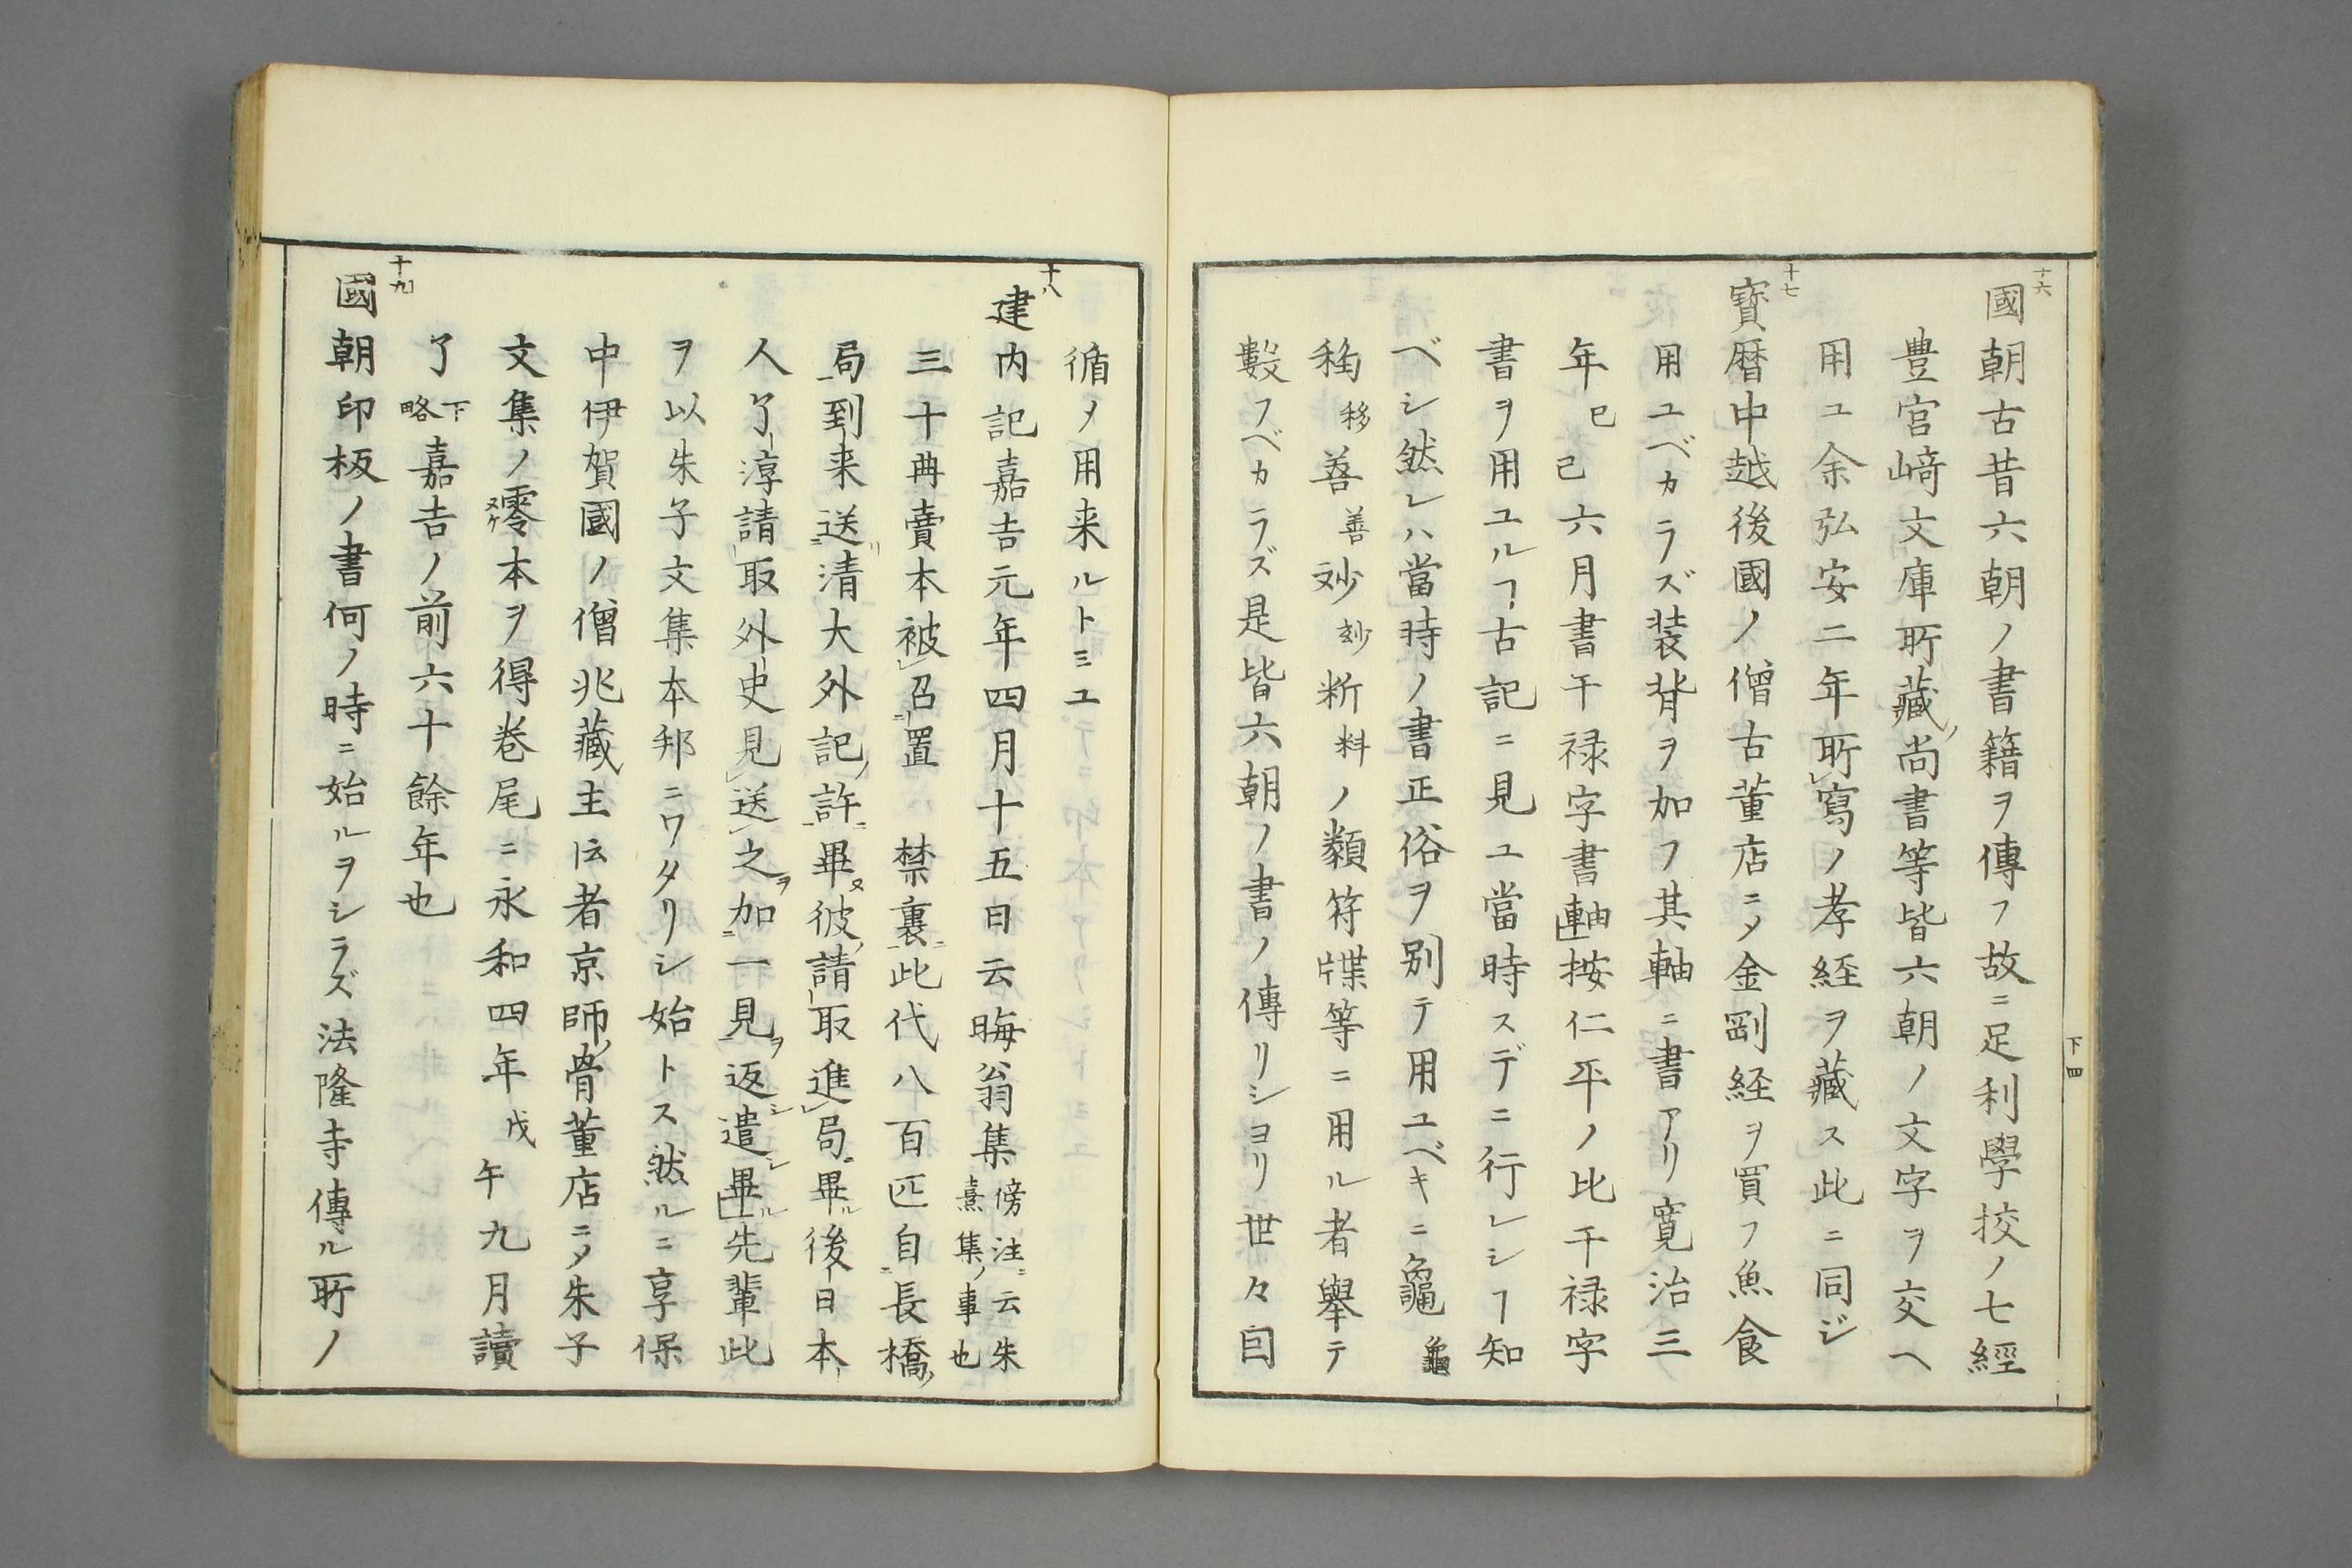 十六
國朝古昔六朝ノ書籍ヲ傳フ故ニ足利學挍ノ七經
豊宮﨑文庫所藏ノ尚書等皆六朝ノ文字ヲ交ヘ
用ユ余弘安二年所寫ノ孝経ヲ藏ス此ニ同ジ
十七
寳暦中越後國ノ僧古董店ニメ金剛経ヲ買フ魚食
用ユベカラズ装背ヲ加フ其軸ニ書アリ寛治三
年己巳六月書干禄字書軸按仁平ノ比干禄字
書ヲ用ユルヿ古記ニ見ユ當時スデニ行レシヿ知
ベシ然レハ當時ノ書正俗ヲ别テ用ユベキニ龜
移善妙料ノ類符牒等ニ用ル者舉テ
數フベカラズ是皆六朝ノ書ノ傳リショリ世々因
下四
循メ用来ルトミユ
十八
建内記嘉吉元年四月十五日云晦翁集傍注ニ云朱熹集ノ事也
三十冊賣本被召置禁裏此代八百匹自長橋
局到来送清大外記許畢彼請取進局畢後日本
人了淳請取外史見送之加一見返遣畢先輩此
ヲ以朱子文集本邦ニワタリシ始トス然ルニ享保
中伊賀國ノ僧兆藏主云者京師骨董店ニメ朱子
文集ノ零本ヲ得巻尾ニ永和四年戊午九月讀
了下略嘉吉ノ前六十餘年也
十九
國朝印板ノ書何ノ時ニ始ルヲシラズ法隆寺傳ル所ノ